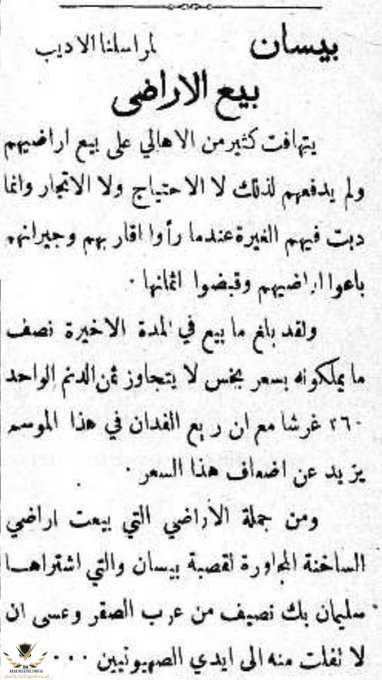 بيسان لمراسلنا الاديب
بيع الاراضي
يتهافت كثير من الاهالي على بيع اراضيهم
ولم يدفعهم لذلك لا الاحتياج ولا الاتجار وانما
دبت فيهم الغيرة عندما رأوا اقاربهم وجيرانهم
باعوا اراضيهم وقبضوا اثمانها ·
ولقد بلغ ما بيع في المدة الاخيرة نصف
ما يملكونه بسعر بخس لا يتجاوز ثمن الدنم الواحد
٢٦٠ غرشا مع ان ريع الفدان في هذا الموسم
يزيد عن اضعاف هذا السعر ·
ومن جملة الاراضي التي بيعت اراضي
الساخنة المجاورة لقصبة بيسان والتي اشتراها
سليمان بك نصيف من عرب الصقر وعسى ان
لا تفلت منه الى ايدي الصهيونيين ....